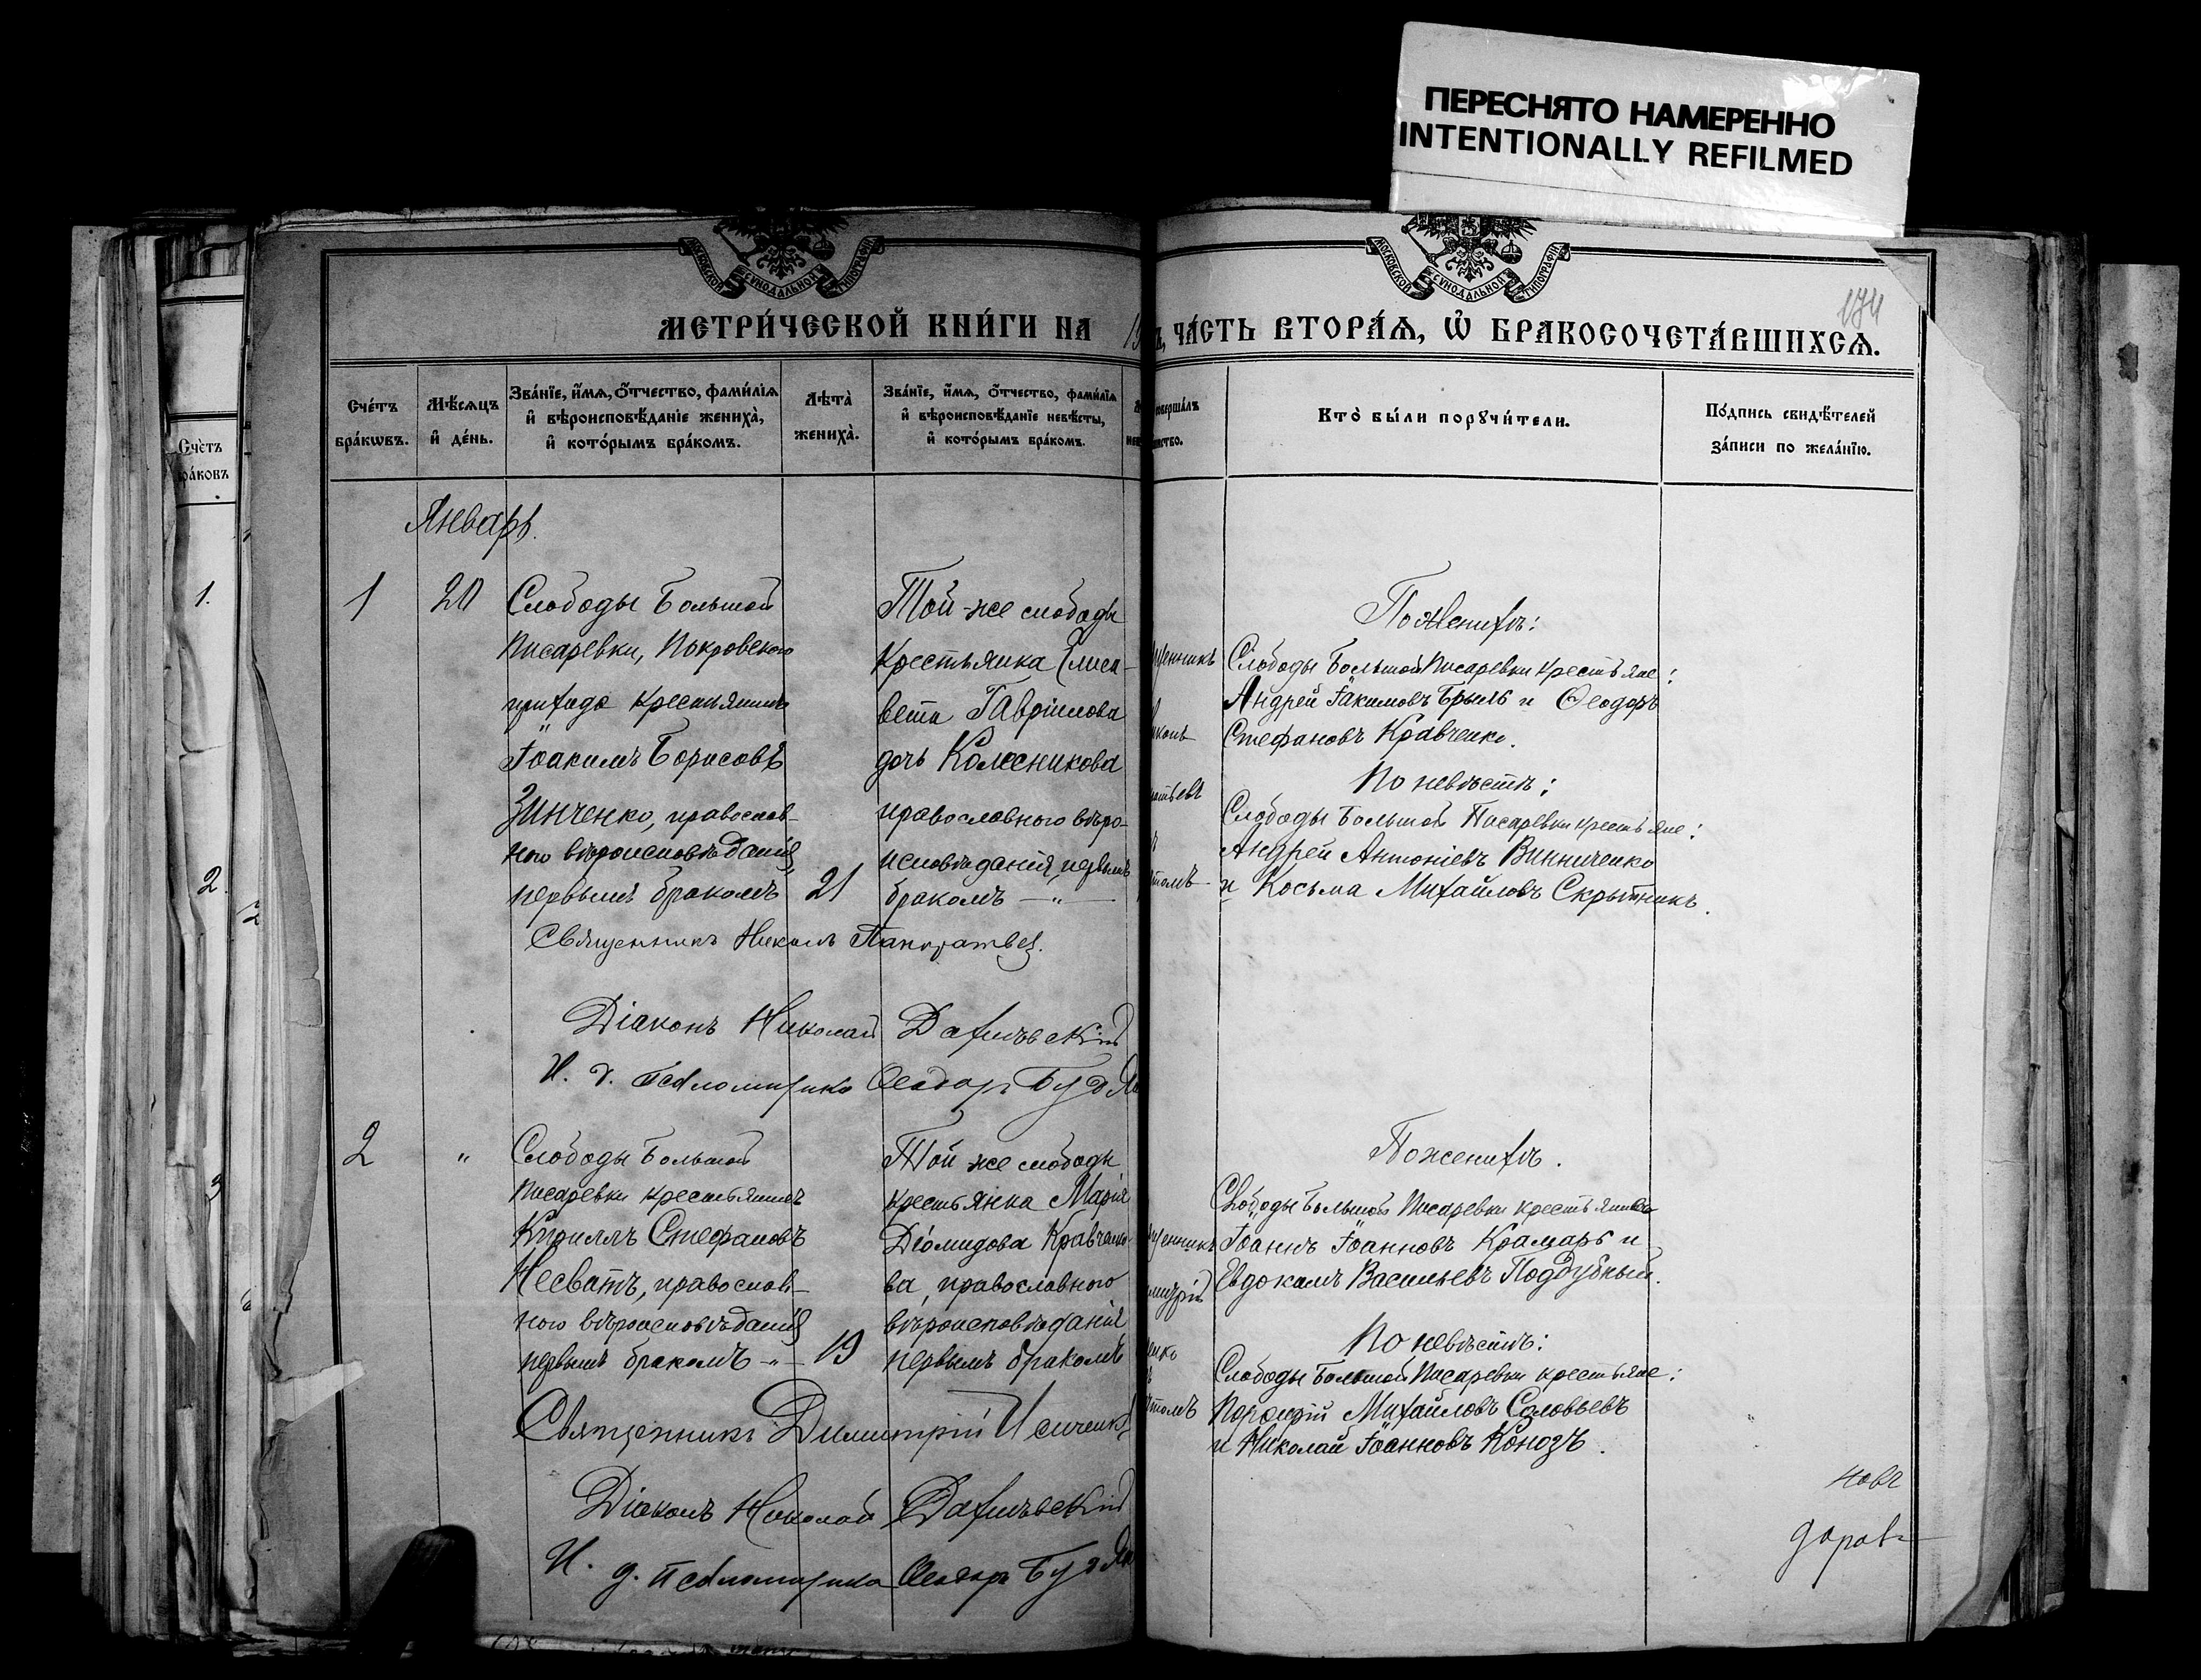 ПЕРЕСНЯТО НАМЕРЕННО
INTENTIONALLY REFILMED
МОСКОВСКОЙ СУНОДАЛЬНОЙ ТИПОГРАФІИ
МОСКОВСКОЙ СУНОДАЛЬНОЙ ТИПОГРАФІИ
МЕТРИ́ЧЕСКОЙ КНИ́ГИ НА 19
ЧА́СТЬ ВТОРА́Ѧ, Ѿ БРАКОСОЧЕТА́ВШИХСѦ.
Сче́тъ
бра́ковъ
Сче́тъ
бра́кѡвъ.
Мѣ́сѧцъ
и҆ де́нь.
Зва́нїе, и҆́мѧ, ѻ҆́тчество, фами́лїѧ
и҆ вѣроисповѣ́данїе жениха̀,
и҆ кото́рымъ бра́комъ.
Лѣ́та̀
жениха̀.
Зва́нїе, и҆́мѧ, ѻ҆́тчество, фами́лїѧ
и҆ вѣроисповѣ́данїе невѣ́сты,
и҆ кото́рымъ бра́комъ.
Кто̀ бы́ли порꙋчи́тели.
По́дпись свидѣ́телей
за́писи по жела́нїю.
Январь.
1
20
Слободы Большой
Писаревки, Покровского
прихода крестьянинъ
Іоакимъ Борисовъ
Зинченко, православ-
ного вѣроисповѣданія,
первымъ бракомъ
21
Той-же слободы
крестьянка Елиса-
вета Гавріилова
дочь Колесникова
православного вѣро-
исповѣданія, первымъ
бракомъ — „ —
По женихѣ:
Слободы Большой Писаревки крестьяне:
Андрей Іакимовъ Брыль и Ѳеодоръ
Стефановъ Кравченко.
По невѣстѣ:
Слободы Большой Писаревки крестьяне:
Андрей Антоніевъ Винниченко
и Косьма Михайловъ Скрытникъ.
Священникъ Николай Панкратьев.
Діаконъ Николай
И. д. Псаломщика Ѳеодоръ
2
„
Слободы Большой
Писаревки крестьянинъ
Кириллъ Стефановъ
Несватъ, православ-
ного вѣроисповѣданія
первымъ бракомъ - „ -
19
Той же слободы
крестьянка Марія
Діомидова Кравченко-
ва, православного
вѣроисповѣданія
первымъ бракомъ
По женихѣ.
Слободы Большой Писаревки крестьяне
Іоаннъ Іоанновъ Крамарь и
Евдокимъ Васильевъ Поддубный.
По невѣстѣ:
Слободы Большой Писаревки крестьяне:
Порфирій Михайловъ Соловьевъ
и Николай Іоанновъ Конозъ.
Священникъ Димитрій Исиченко
Діаконъ Николай
И. д. Псаломщика Ѳеодоръ